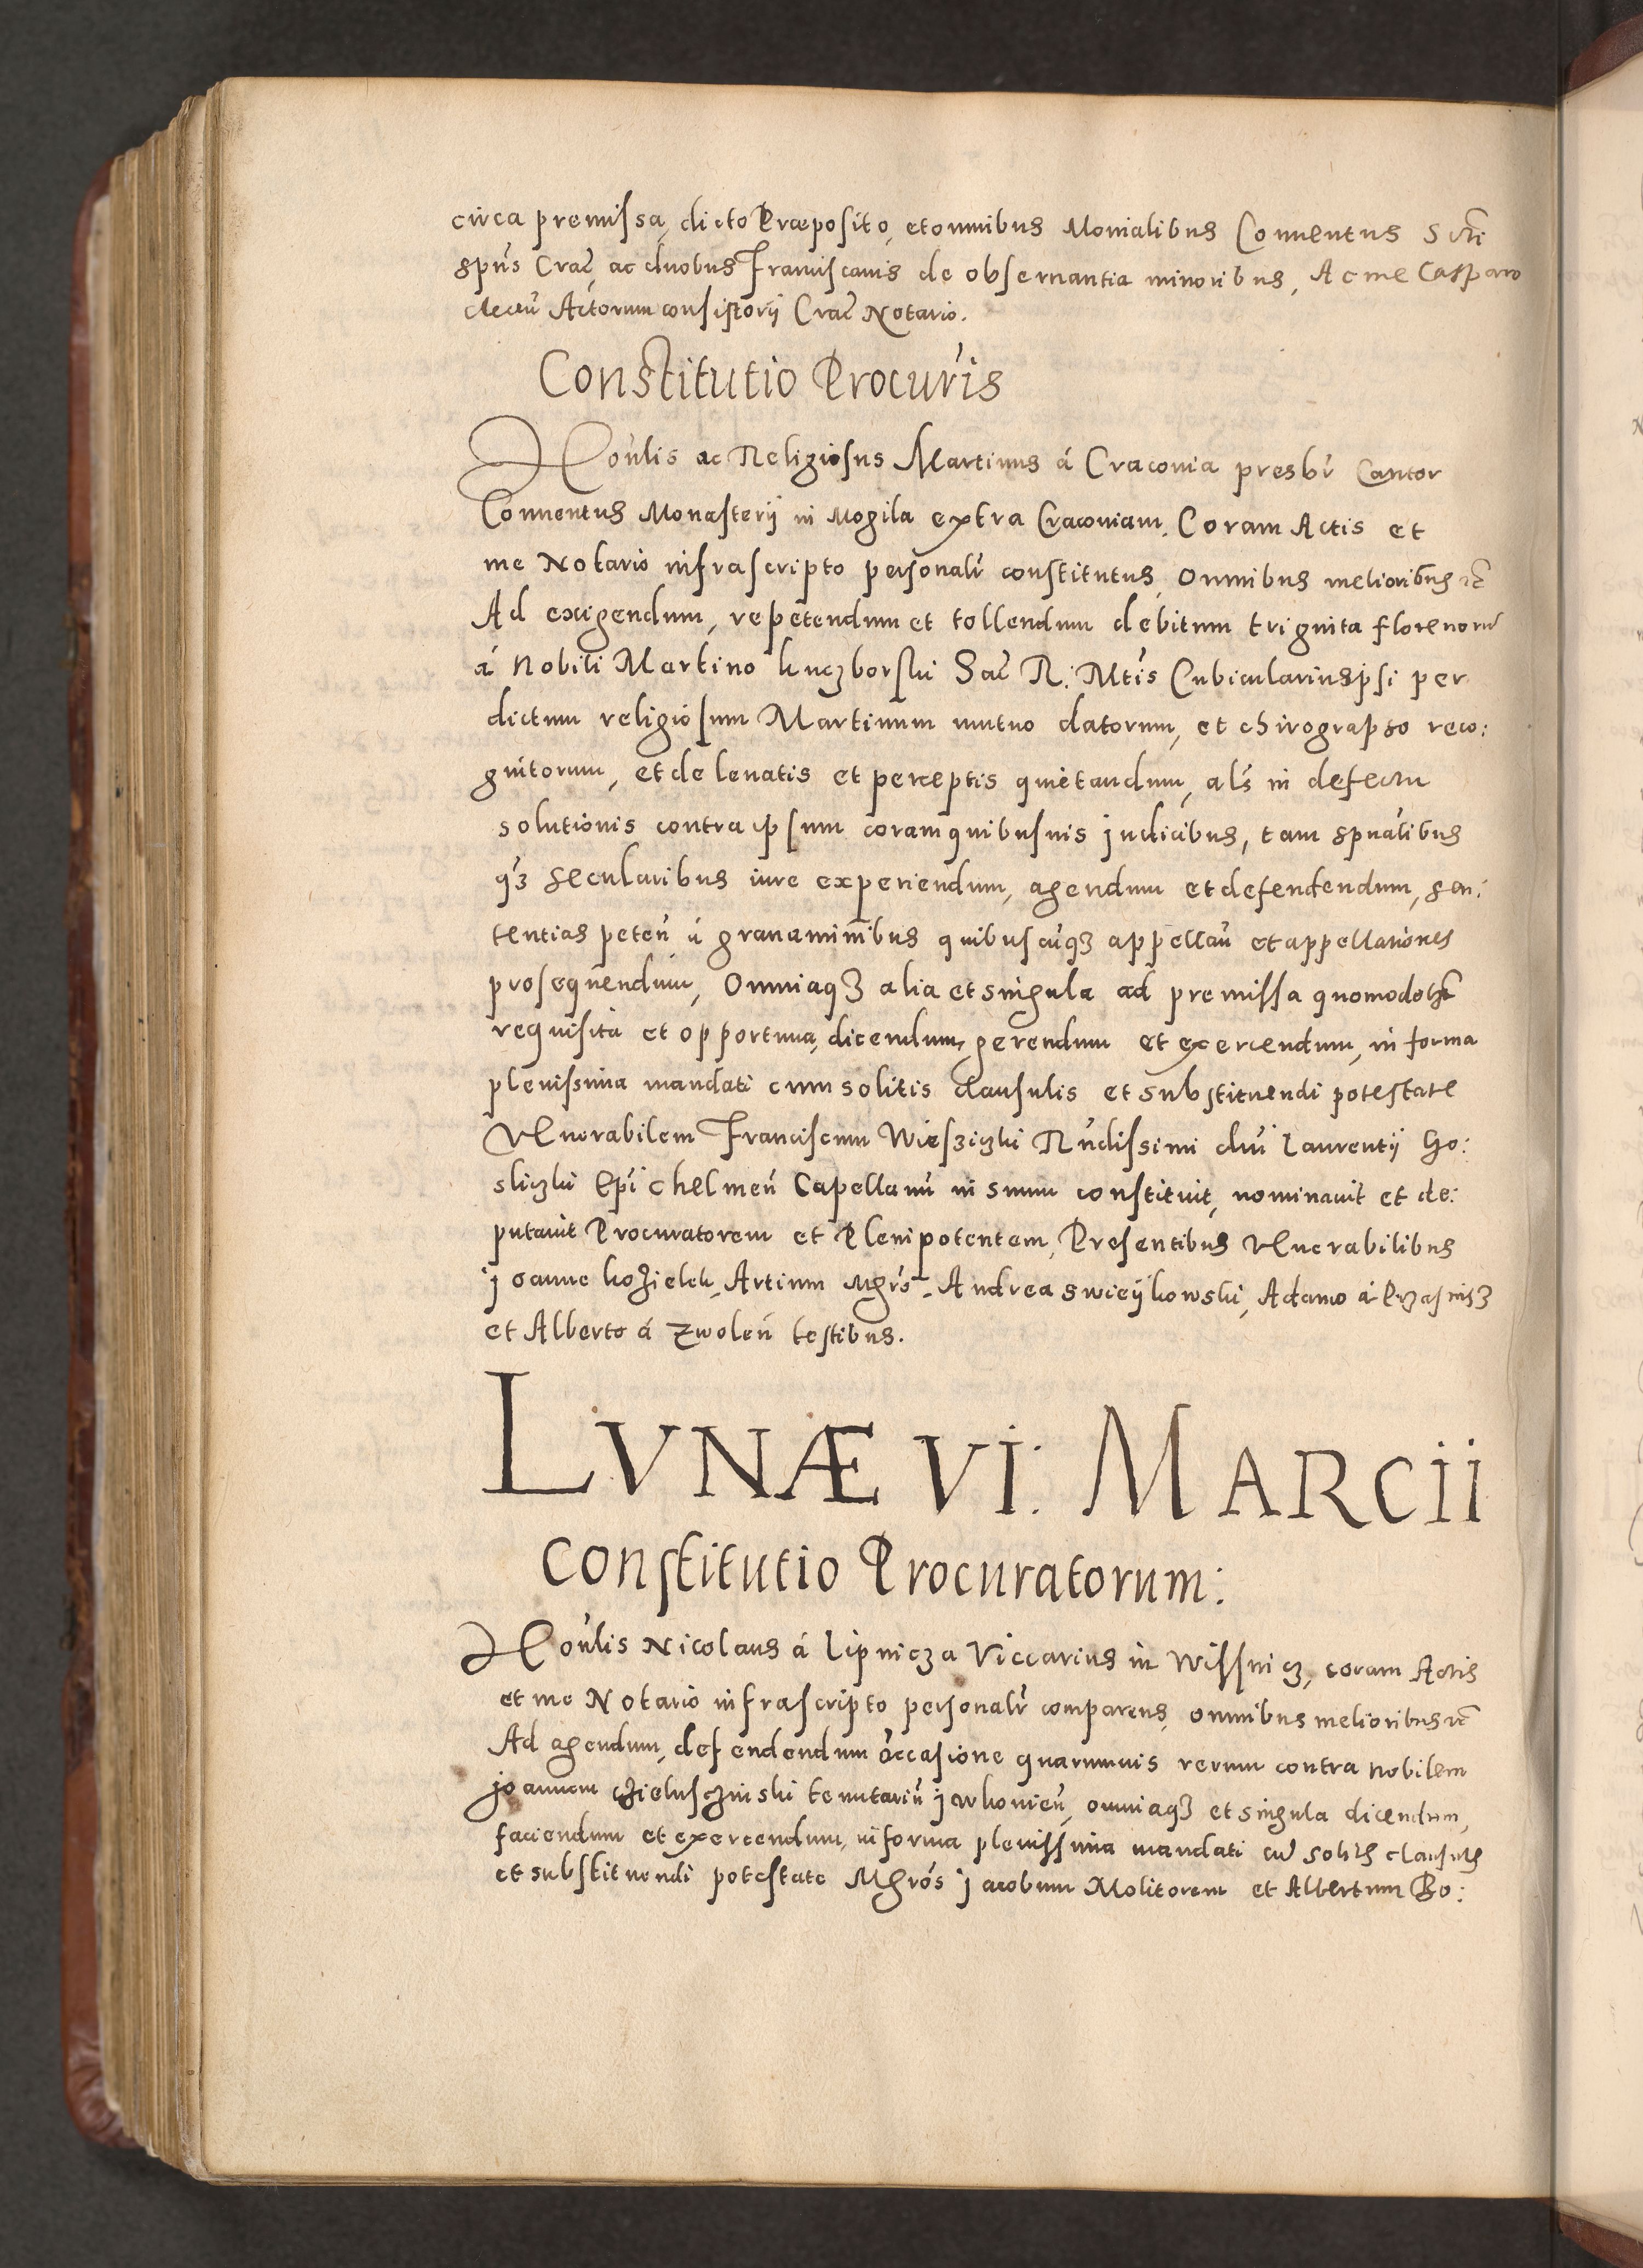 circa premissa, dicto Præposito, et omnibus Monialibus Conuentus Scti
Spūs Crac̄, ac duobus Franciscanis de obseruantia minoribus, Ac me Casparo
Actorum consistorij Crac̄ Notario.
Constitutio Procurīs
Honlis ac Religiosus Martinus á Craconia presbr̄ Cantor
Conuentus Monasterij in Mogila extra Cracouiam. Coram Actis et
me Notario infrascripto personalr̄ constitutus, omnibus melioribus etc̄
Ad exigendum, repetendum et tollendum debitum triginta florenorū
á Nobili Martino kuczborski Sac̄ R. Mtīs Cubiculario ipsi per
dictum religiosum Martinum mutuo datorum, et chirographo reco:
gnitorum, et de leuatis et perceptis quietandum, alš in defectu
solutionis contra ipsum coram quibusuis judicibus, tam spūalibus
qz secularibus iure experiendum, agendum et defendendum, sen:
tentias peteń á grauaminibus quibuscūqz appellań et appellationes
prosequendum, Omniaqz alia et singula ad premissa quomodolt̄
requisita et opportuna, dicendum, gerendum et exercendum, in forma
plenissima mandati cum solitis clausulis et substituendi potestate
Venerabilem Franciscum Wiesziczki Rn̄dissimi dni Laurentij Go:
sliczki Epī chelmeń Capellanū in suum constituit, nominauit et de:
putauit Procuratorem et Plenipotentem, Presentibus Venerabilibus
joanne koziełek, Artium Mgrō. Andrea swieijkowski, Adamo á
et Alberto á Zwoleń testibus.
LVNÆ VI: MARCII
Constitutio Procuratorum:
Honlis Nicolaus á Lipnicza Viccarius in Wissnicz, coram Actis
et me Notario infrascripto personalr̄ comparens, omnibus melioribus etc̄
Ad agendum, defendendum occasione quarumuis rerum contra nobilem
joannem tenutariū omniaqz et singula dicendum,
faciendum et exercendum, in forma plenissima mandati cū solitis clausulis
et substituendi potestate Mgrōs jacobum Molitorem et Albertum Bo: